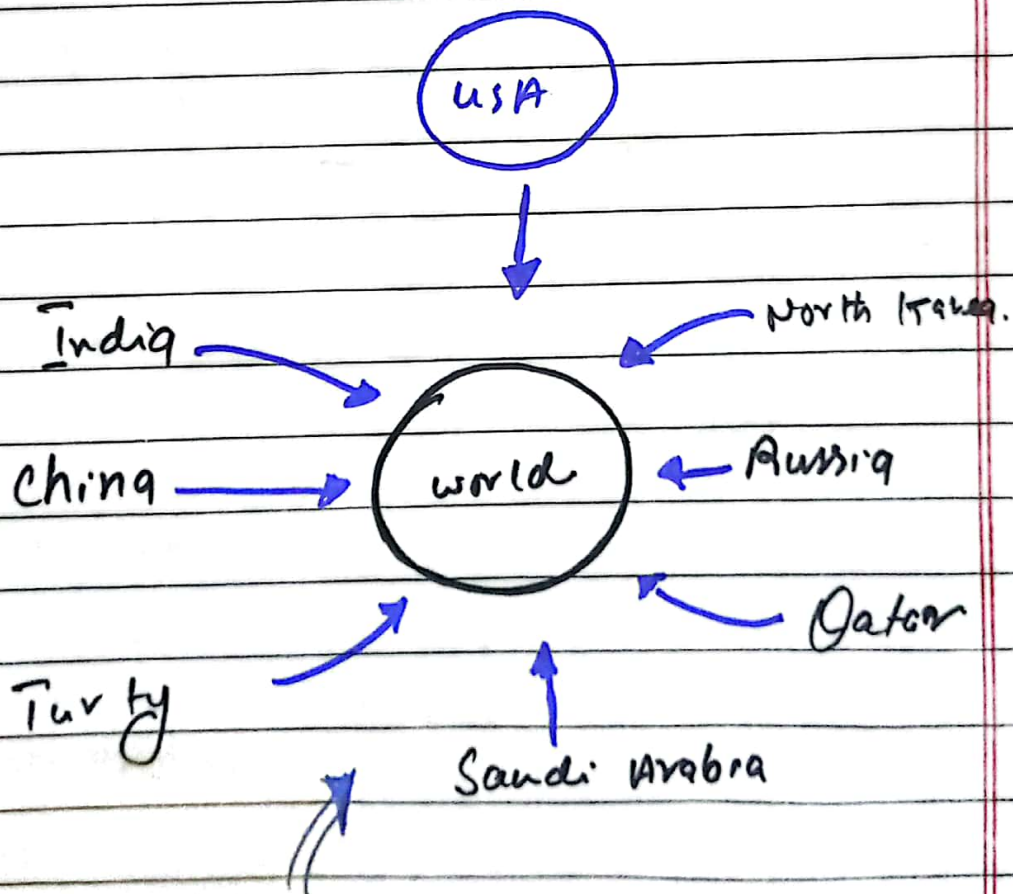 USA
India
North Korea.
China
world
Russia
Qatar
Turky
Saudi Arabia